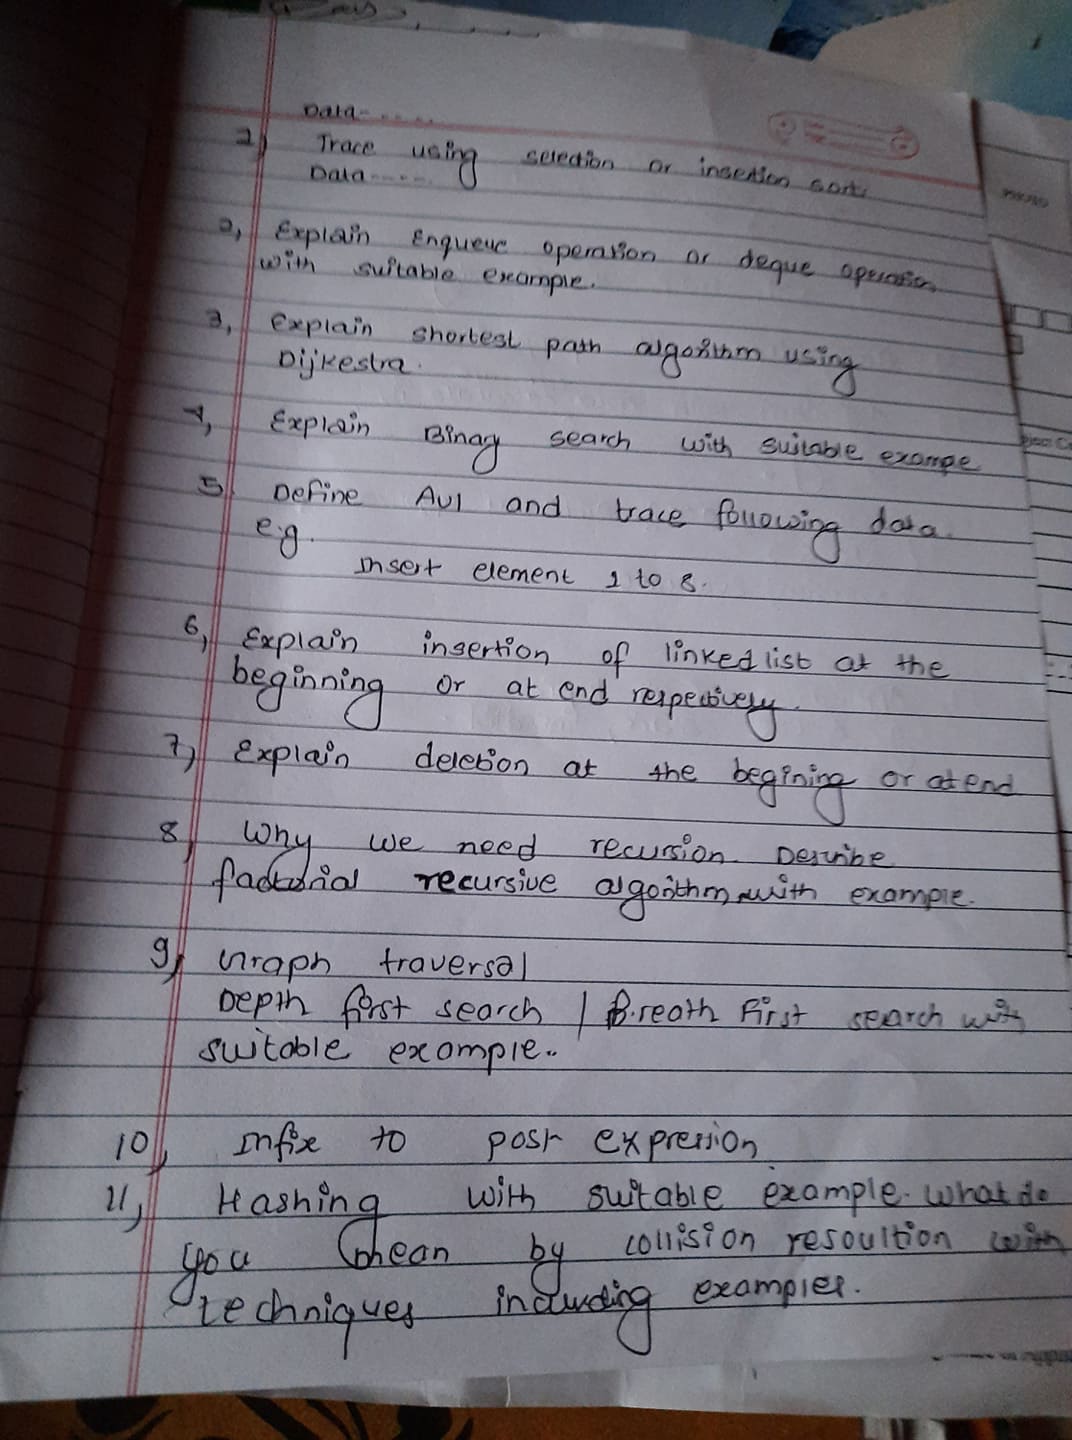 Data......
1) Trace using selection or insertion sort.
Data......
2, Explain Enqueue operation or deque operation
with suitable example.
3, Explain shortest path algorithm using
Dijkestra.
4, Explain Binay search with suitable exampe
5) Define AVl and trace following data.
e.g.
Insert element 1 to 8.
6, Explain insertion of linked list at the
beginning or at end respectively.
7, Explain deletion at the begining or at end
8, Why we need recursion. Describe
factorial recursive algorithm with example.
9, Graph traversal
Depth first search / Breath First search with
suitable example..
10, Infix to post expression
11, Hashing with suitable example. what do
you mean by collision resoultion with
techniques including examples.